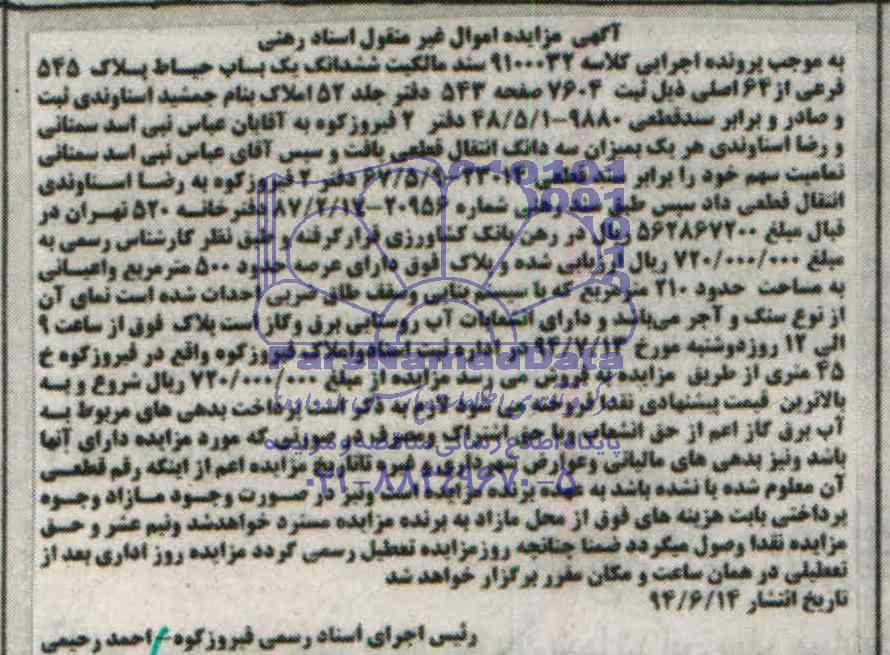 آگهی مزایده اموال غیر منقول اسناد رهنی
به موجب پرونده اجرایی کلاسه ۹۱۰۰۰۳۲ سند مالکیت ششدانگ یک باب حیاط پلاک ۵۴۵
فرعی از ۶۴ اصلی ذیل ثبت ۷۶۰۴ صفحه ۵۴۳ دفتر جلد ۵۲ املاک بنام جمشید استاوندی ثبت
و صادر و برابر سندقطعی ۹۸۸۰-۴۸/۵/۱ دفتر ۲ فیروزکوه به آقایان عباس نبی اسد سمنانی
و رضا استاوندی هر یک بمیزان سه دانگ انتقال قطعی یافت و سپس آقای عباس نبی اسد سمنانی
تمامیت سهم خود را برابر سند قطعی ۲۳۰۱۴-۶۷/۵/۹ دفتر ۲ فیروزکوه به رضا استاوندی
انتقال قطعی داد سپس طبق سند رهنی شماره ۲۰۹۵۶-۸۷/۲/۱۴ دفترخانه ۵۲۰ تهران در
قبال مبلغ ۵۶۲۸۶۷۲۰۰ ریال در رهن بانک کشاورزی قرارگرفته و طبق نظر کارشناس رسمی به
مبلغ ۷۲۰/۰۰۰/۰۰۰ ریال ارزیابی شده و پلاک فوق دارای عرصه حدود ۵۰۰ مترمربع واعیانی
به مساحت حدود ۲۱۰ مترمربع که با سیستم بنایی وسقف طاق ضربی احداث شده است نمای آن
از نوع سنگ و آجر می‌باشد و دارای انشعابات آب روستایی برق وگاز است پلاک فوق از ساعت ۹
الی ۱۲ روزدوشنبه مورخ ۹۴/۷/۱۳ در اداره ثبت اسناد واملاک فیروزکوه واقع در فیروزکوه خ
۴۵ متری از طریق مزایده به فروش می رسد مزایده از مبلغ ۷۲۰/۰۰۰/۰۰۰ ریال شروع و به
بالاترین قیمت پیشنهادی نقدا فروخته می شود لازم به ذکر است پرداخت بدهی های مربوط به
آب برق گاز اعم از حق انشعاب و یا حق اشتراک و مصرف در صورتی که مورد مزایده دارای آنها
باشد ونیز بدهی های مالیاتی وعوارض شهرداری و غیره تاتاریخ مزایده اعم از اینکه رقم قطعی
آن معلوم شده یا نشده باشد به عهده برنده مزایده است ونیز در صورت وجود مازاد وجوه
پرداختی بابت هزینه های فوق از محل مازاد به برنده مزایده مسترد خواهدشد ونیم عشر و حق
مزایده نقدا وصول میگردد ضمنا چنانچه روزمزایده تعطیل رسمی گردد مزایده روز اداری بعد از
تعطیلی در همان ساعت و مکان مقرر برگزار خواهد شد
تاریخ انتشار ۹۴/۶/۱۴
رئیس اجرای اسناد رسمی فیروزکوه - احمد رحیمی
ParsNamadData
پایگاه اطلاع رسانی مناقصه و مزایده
۰۲۱-۸۸۳۴۹۶۷۰-۵